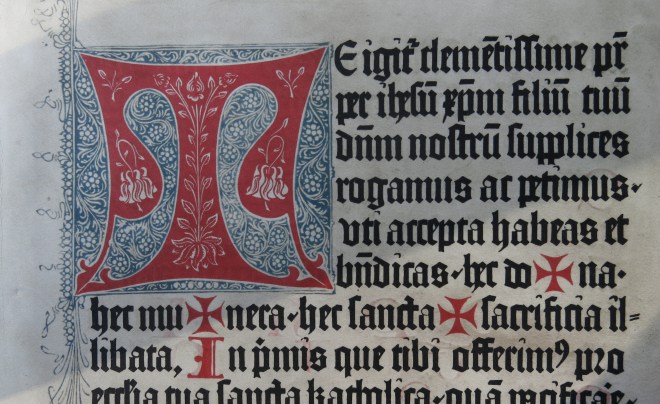 TEigit᷑ clemētissime pr̄
per ihesū xp̄m filiū tuū
dn̄m nostrū supplices
rogamus ac petimus·
vti accepta habeas et
bn̄dicas·hec do✠na·
hec mu✠nera·hec sancta✠sacrificia il-
libata, In p̄mis que tibi offerimꝰ pro
ecclīa tua sancta katholica·quā pacificare